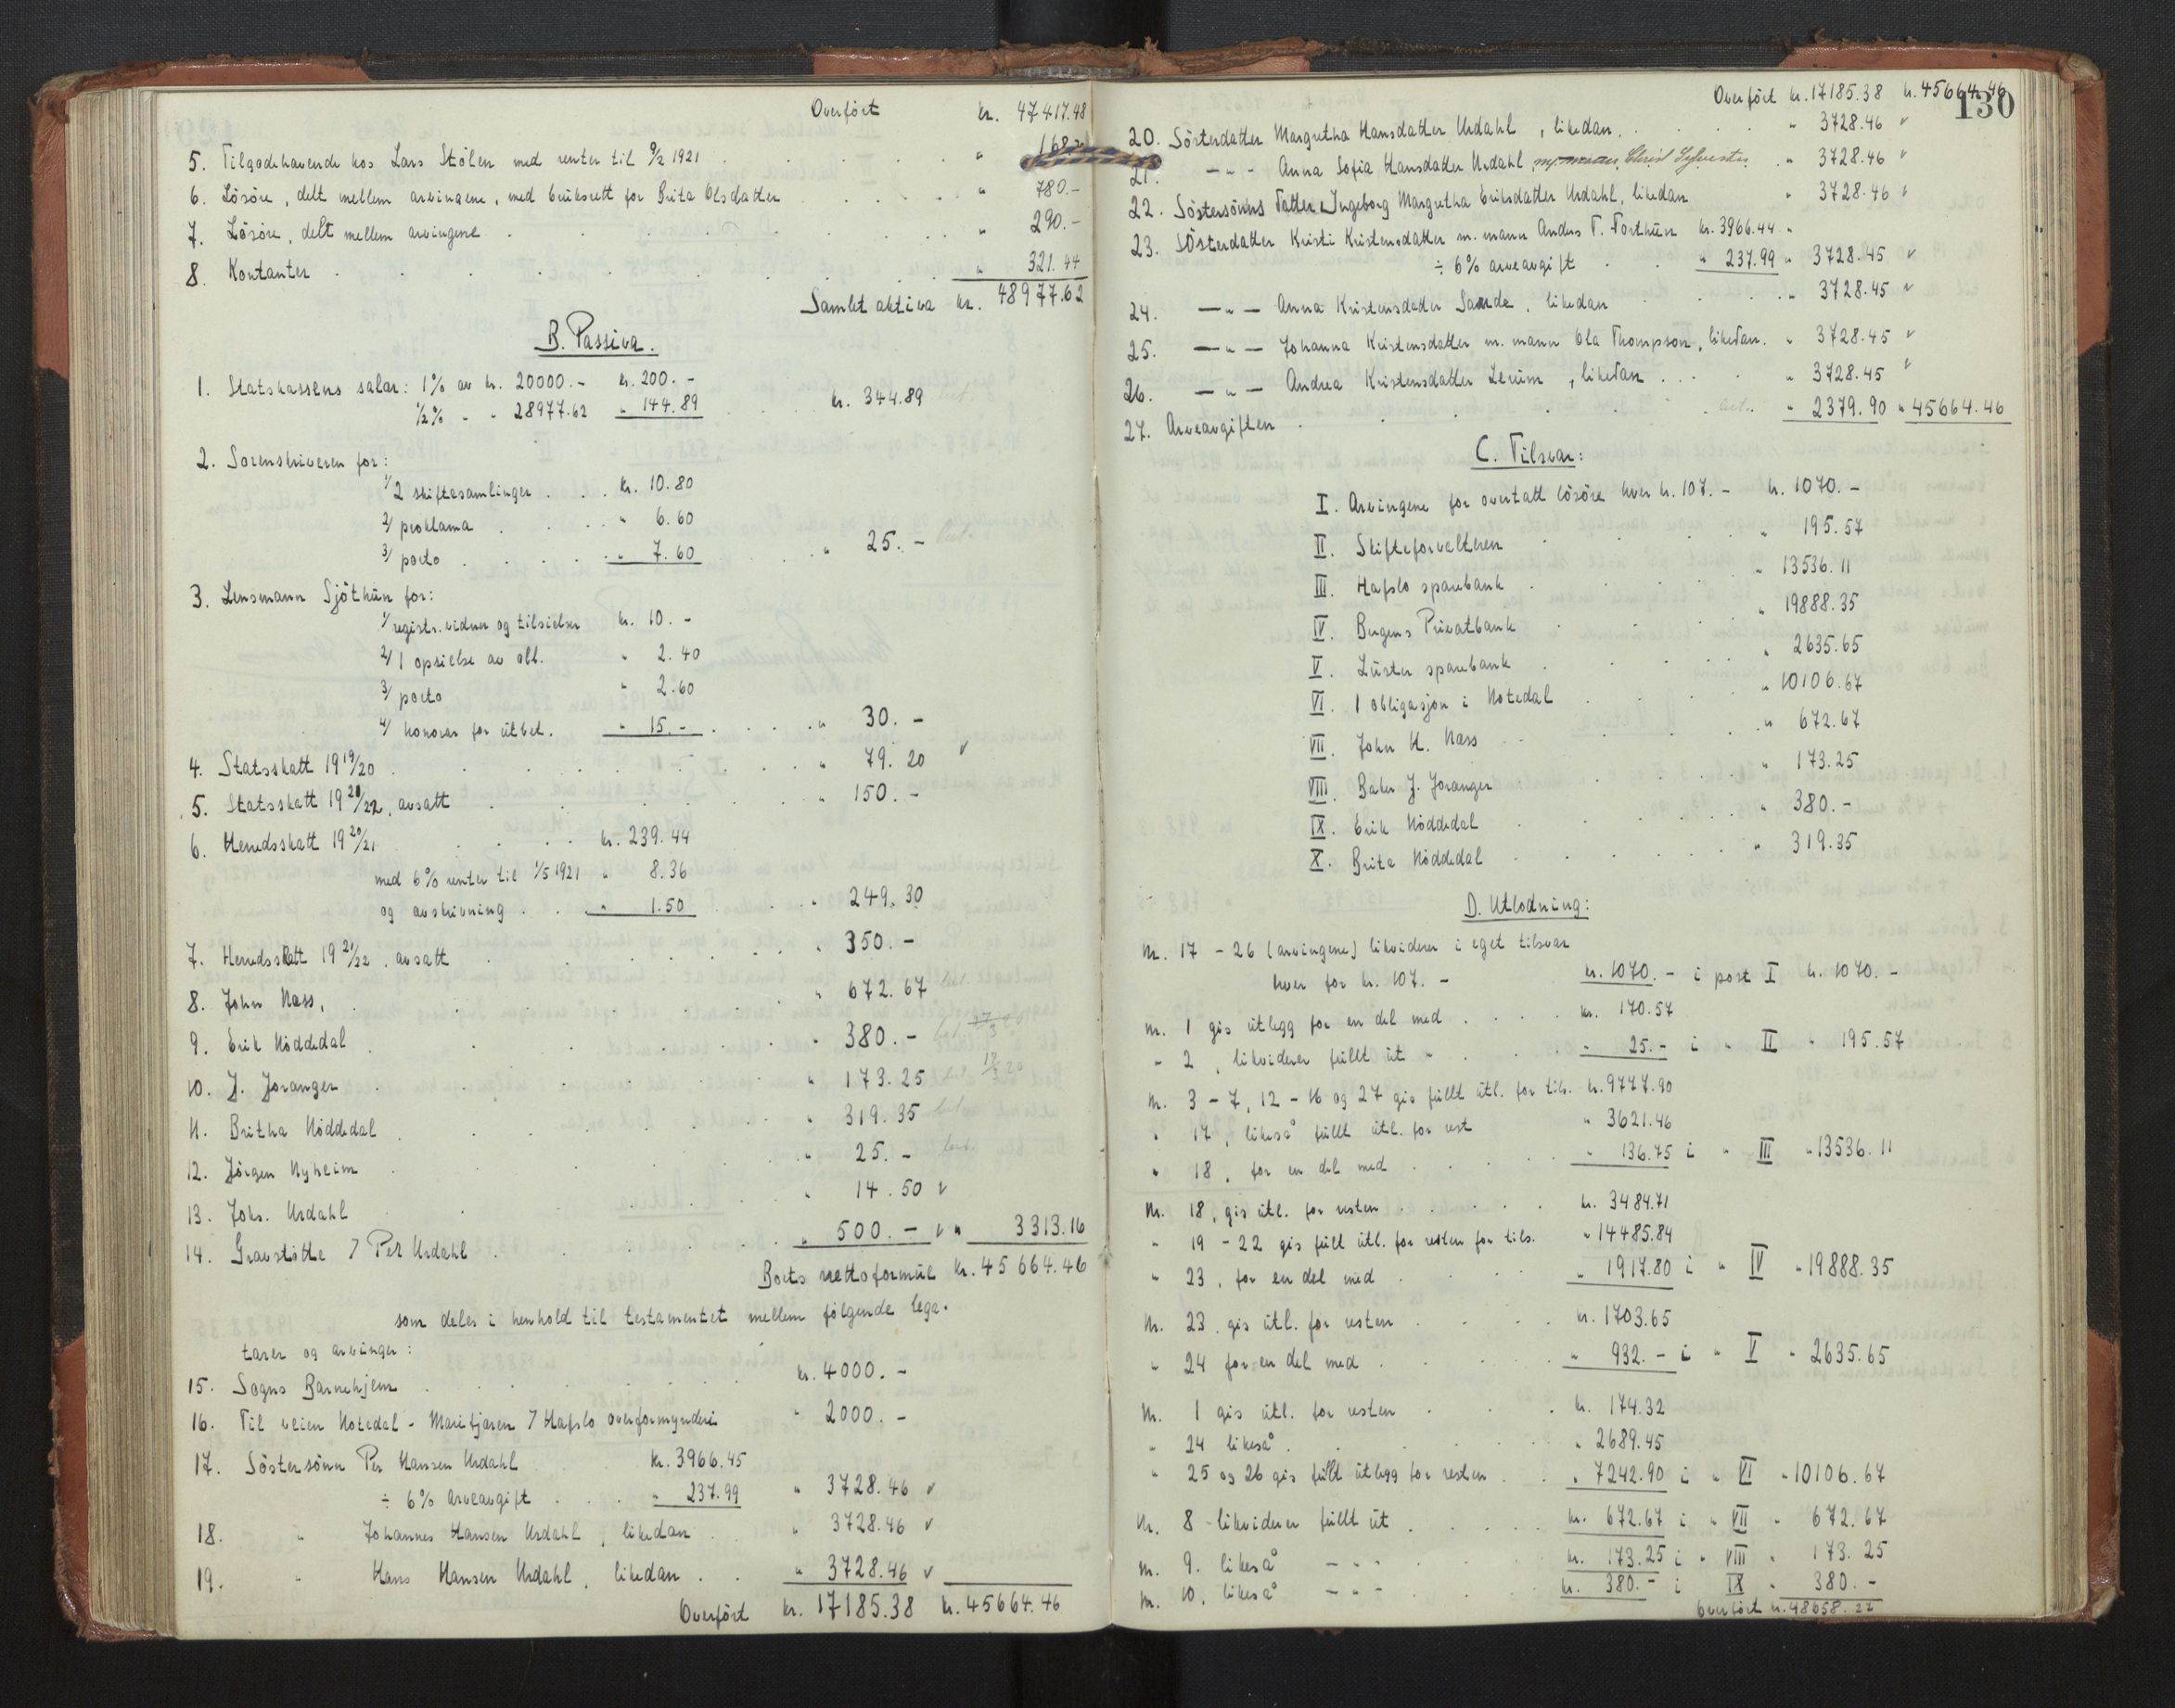 Overført kr. 47417.48
5. Tilgodehavende hos Lars Stølen med renter til 9/2 1921 . . . " 168.
6. Løsøre, delt mellem arvingene, med bruksrett for Brita Olsdatter . . . " 780.-
7. Løsøre, delt mellem arvingene . . . " 290.-
8. Kontanter . . . " 321.44
Samlet aktiva kr. 48977.62
B. Passiva.
1. Statskassens salær: 1% av kr. 20000.- kr. 200.-
½% - - 28977.62 " 144.89 . . kr. 344.89
2. Sorenskriveren for:
1/ 2 skiftesamlinger . . . kr. 10.80
2/ proklama . . . " 6.60
3/ porto . . . " 7.60 . . " 25.-
3. Lensmann Sjøthün for:
1/ registr. vidner og tilsielser kr. 10.-
2/ 1 opsielse av obl. " 2.40
3/ porto " 2.60
4/ honorar for ütbet. " 15.- . . . " 30.-
4. Statsskatt 19 19/20 . . . " 79.20 v
5. Statsskatt 19 20/22, avsatt . . . " 150.-
6. Herredsskatt 19 20/21 . . . kr. 239.44
med 6% renter til 1/5 1921 " 8.36
og avskrivning . . " 1.50 . . " 249.30
7. Herredsskatt 19 21/22, avsatt . . . " 350.-
8. John Nass, . . . " 672.67 bet.
9. Erik Nøddedal . . . " 380.-
10. J. Joranger . . . " 173.25
11. Britha Nøddedal . . . " 319.35 bet
12. Jørgen Nyheim . . . " 25.- bet.
13. Johs. Urdahl . . . " 14.50 v
14. Gravstøtte / Per Urdahl . . . " 500.- v " 3313.16
Boets nettoformüe kr. 45664.46
som deles i henhold til testamentet mellem følgende lega-
tarer og arvinger:
15. Sogns Barnehjem . . . kr. 4000.-
16. Til veien Notedal - Marifjøren / Hafslo overformynderi " 2000.-
17. Søstersønn Per Hansen Urdahl kr. 3966.45
÷ 6% arveavgift . . . " 237.99 " 3728.46 v
18. " Johannes Hansen Urdahl, likedan . . " 3728.46 v
19. " Hans Hansen Urdahl, likedan . . " 3728.46 v
Overført kr. 17185.38 kr. 45664.46
130
Overført kr. 17185.38 kr. 45664.46
20. Søsterdatter Margretha Hansdatter Urdahl, likedan . . . " 3728.46 v
21. - " - Anna Sofia Hansdatter Urdahl, Christ Sylvester . " 3728.46 v
22. Søstersønns datter Ingeborg Margretha Eriksdatter Urdahl, likedan " 3728.46 v
23. Søsterdatter Kristi Kristensdatter m. mann Anders T. Forthün kr. 3966.44
÷ 6% arveavgift . . " 237.99 " 3728.45 v
24. - " - Anna Kristensdatter Sande, likedan . . . " 3728.45 v
25. - " - Johanna Kristensdatter m. mann Ola Thompson, likedan. " 3728.45 v
26. - " - Andrea Kristensdatter Lerüm, likedan . . . " 3728.45 v
27. Arveavgiften . . . bet. " 2379.90 " 45664.46
C. Tilsvar:
I. Arvingene for overtatt løsøre hver kr. 107.- kr. 1070.-
II. Skifteforvalteren . . . " 195.57
III. Hafslo sparebank . . . " 13536.11
IV. Bergens Privatbank . . . " 19888.35
V. Lüster sparebank . . . " 2635.65
VI. 1 obligasjon i Notedal . . . " 10106.67
VII. John H. Nass . . . " 672.67
VIII. Baker J. Joranger . . . " 173.25
IX. Erik Nøddedal . . . " 380.-
X. Brita Nøddedal . . . " 319.35
D. Utlodning:
Nr. 17 - 26 (arvingene) likviderer i eget tilsvar
hver for kr. 107.- kr. 1070.- i post I kr. 1070.-
Nr. 1 gis ütlegg for en del med . . . . kr. 170.57
" 2, likviderer füllt üt . . . " 25.- i " II " 195.57
Nr. 3 - 7, 12 - 16 og 27 gis füllt ütl. for tils. kr. 9777.90
" 17, likeså füllt ütl. for rest " 3621.46
" 18, for en del med . . . " 136.75 i " III " 13536.11
Nr. 18, gis ütl. for resten . . . . kr. 3484.71
" 19 - 22 gis füll ütl. for resten for tils. " 14485.84
" 23, for en del med . . . " 1917.80 i " IV " 19888.35
Nr. 23 gis ütl. for resten . . . . kr. 1703.65
" 24 for en del med . . . . " 932.- i " V " 2635.65
Nr. 1 gis ütl. for resten . . . kr. 174.32
" 24 likeså . . . " 2689.45
" 25 og 26 gis füllt ütlegg for resten . . " 7242.90 i " VI " 10106.67
Nr. 8 likviderer füllt üt . . . . kr. 672.67 i " VII " 672.67
Nr. 9. likeså - " - kr. 173.25 i " VIII " 173.25
Nr. 10, likeså - " - kr. 380.- i IX " 380.-
Overført kr. 48658.22